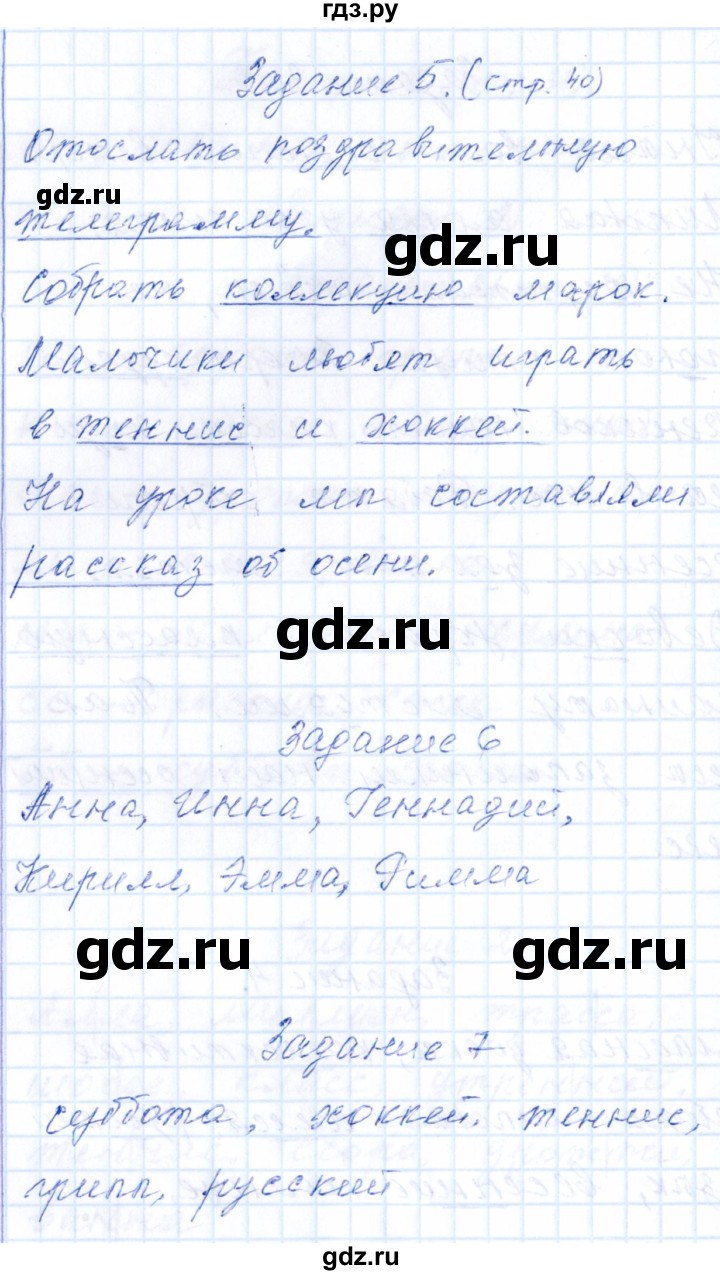 гдз.ру
Задание 5. (стр. 40)
Отослать поздравительную
gdz.ru
телеграмму.
gdz.ru
Собрать коллекцию марок.
Мальчики любят играть
в теннис и хоккей.
На уроке мы составляли
рассказ об осени.
gdz.ru
Задание 6
Анна, Инна, Геннадий,
Кирилл, Эмма, Римма
gdz.ru gdz.ru
Задание 7
суббота, хоккей, теннис,
грипп, русский
gdz.ru